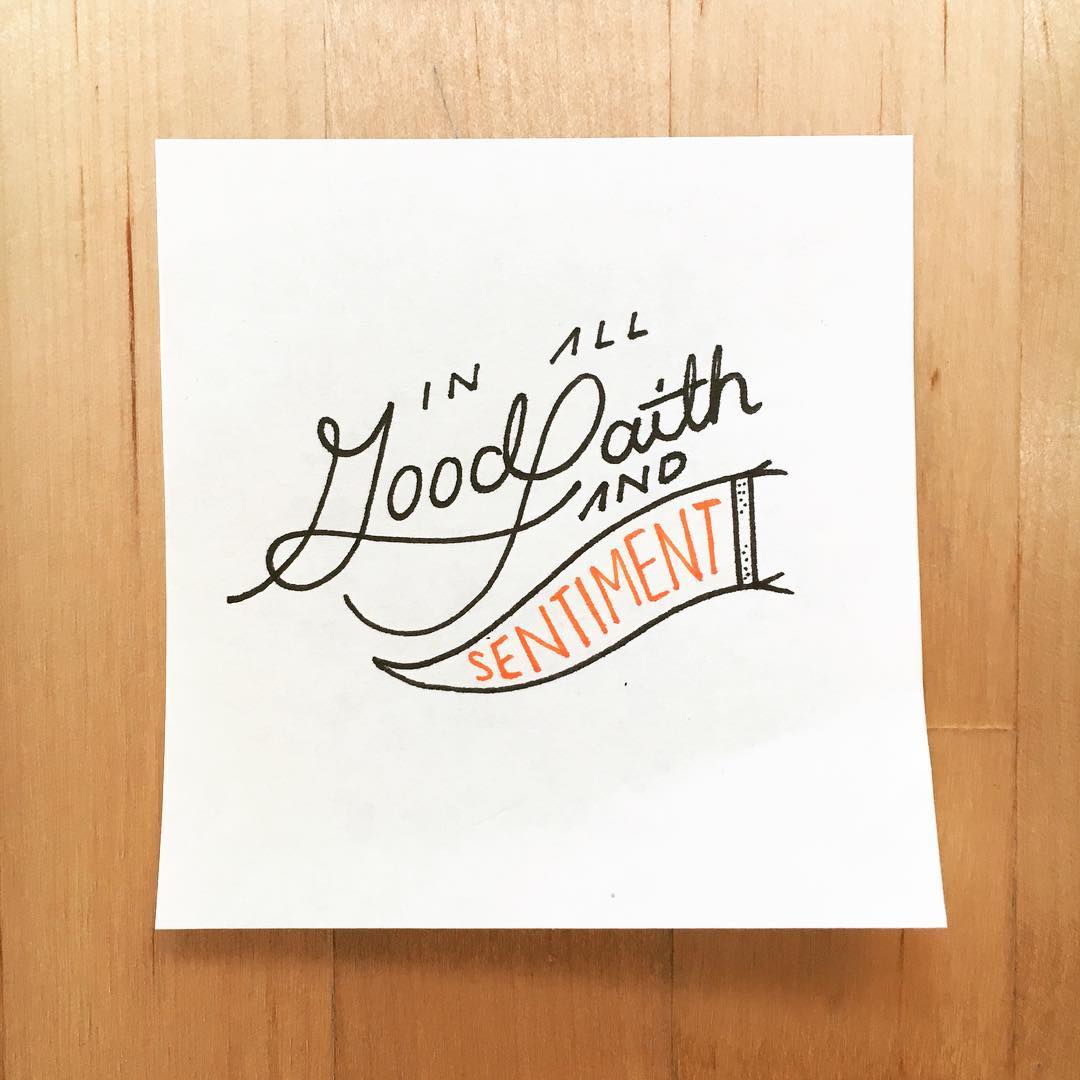 IN ALL
Good faith
AND
SENTIMENT